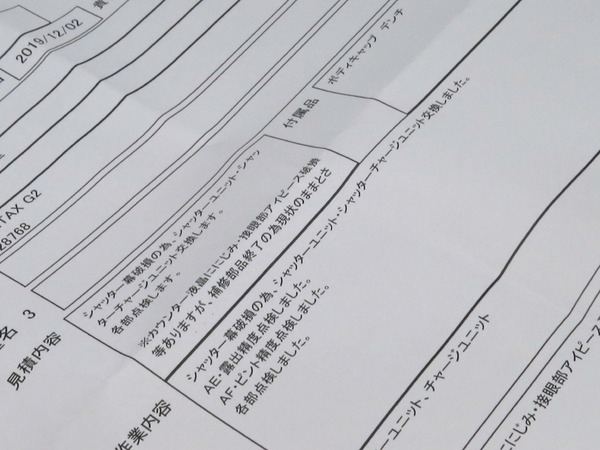 2019/12/02
TAX G2
28768
付属品
ボディキャップ デンチ
名 3
見積内容
シャッター幕破損の為、シャッターユニット・シャッ
ターチャージユニット交換します。
各部点検します。
※カウンター液晶ににじみ・接眼部アイピース破損
等ありますが、補修部品終了の為現状のままとさ
作業内容
シャッター幕破損の為、シャッターユニット・シャッターチャージユニット交換しました。
AE・露出精度点検しました。
AF・ピント精度点検しました。
各部点検しました。
ーユニット、チャージユニット
ににじみ・接眼部アイピース